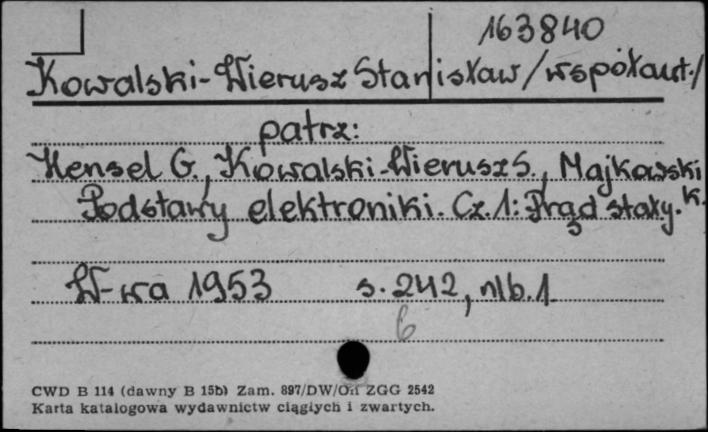 163840
Kowalski-Wierusz Stanisław /współaut./
patrz:
Hensel G., Kowalski-Wierusz S., Majkowski K.
Podstawy elektroniki. Cz. 1: Prąd stały.
W-wa 1953 s. 242, nlb. 1
6
CWD B 114 (dawny B 15b) Zam. 897/DW/On ZGG 2542
Karta katalogowa wydawnictw ciągłych i zwartych.